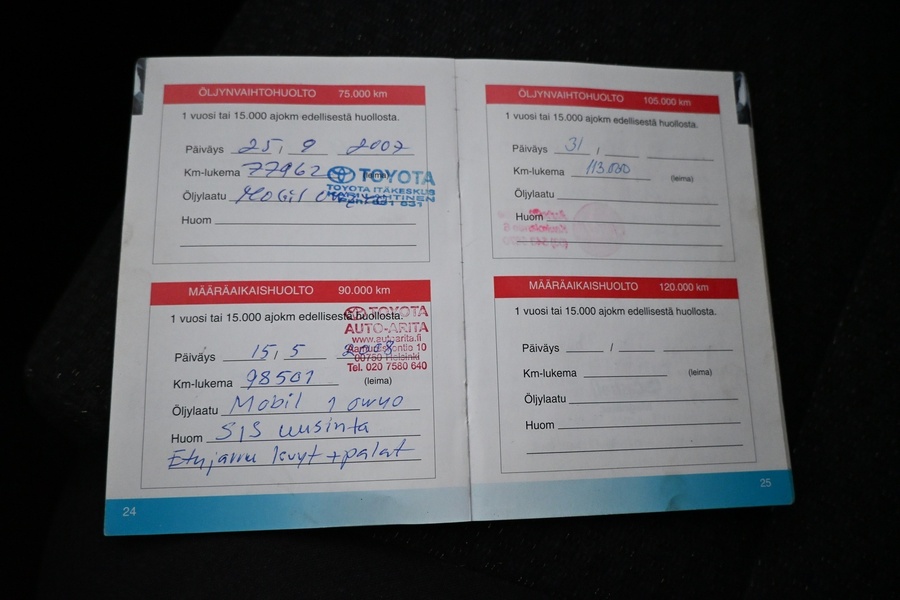 ÖLJYNVAIHTOHUOLTO 75.000 km
1 vuosi tai 15.000 ajokm edellisestä huollosta.
Päiväys 25, 9 2007
Km-lukema 77962 (leima)
TOYOTA
TOYOTA ITÄKESKUS
Öljylaatu Mobil
Huom
MÄÄRÄAIKAISHUOLTO 90.000 km
1 vuosi tai 15.000 ajokm edellisestä huollosta.
TOYOTA
AUTO-ARITA
www.autoarita.fi
Päiväys 15, 5 2008
00750 Helsinki
Tel. 020 7580 640
Km-lukema 98501 (leima)
Öljylaatu Mobil 1 ow40
Huom S/S uusinta
Etujarru levyt + palat
24
ÖLJYNVAIHTOHUOLTO 105.000 km
1 vuosi tai 15.000 ajokm edellisestä huollosta.
Päiväys 31 /
Km-lukema 113.000 (leima)
Öljylaatu
Huom
MÄÄRÄAIKAISHUOLTO 120.000 km
1 vuosi tai 15.000 ajokm edellisestä huollosta.
Päiväys /
Km-lukema (leima)
Öljylaatu
Huom
25